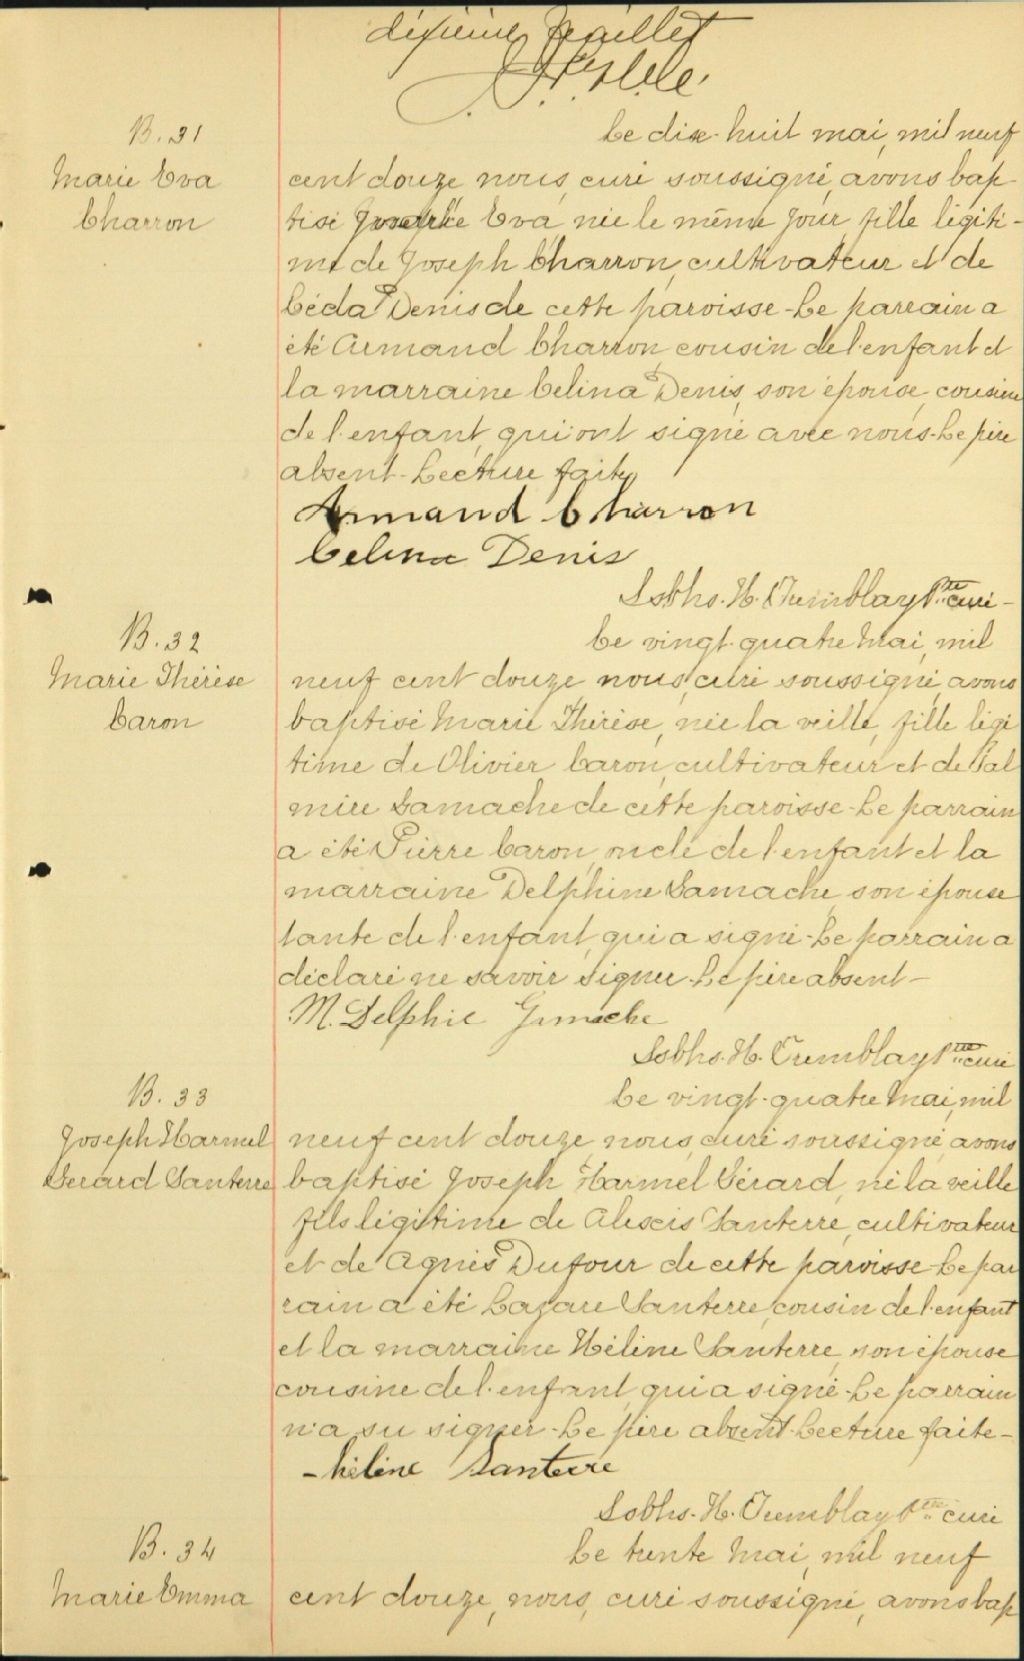 dixième feuillet
B. 31
Marie Eva
Charron
Le dix-huit mai, mil neuf
cent douze, nous, curé soussigné, avons bap
tisé Eva née le même jour, fille légiti-
me de Joseph Charron, cultivateur et de
Léda Denis de cette paroisse - Le parrain a
été Armand Charron, cousin de l'enfant et
la marraine Célina Denis, son épouse, cousine
de l'enfant, qui ont signé avec nous - Le père
absent - Lecture faite
Armand Charron
Celina Denis
H. Tremblay Ptre curé -
B. 32
Marie Thérèse
Caron
Le vingt-quatre Mai, mil
neuf cent douze, nous, curé soussigné, avons
baptisé Marie Thérèse, née la veille, fille légi
time de Olivier Caron, cultivateur et de Pal
mire Gamache de cette paroisse - Le parrain
a été Pierre Caron, oncle de l'enfant et la
marraine Delphine Gamache, son épouse
tante de l'enfant, qui a signé - Le parrain a
déclaré ne savoir signer - Le père absent -
M. Delphie Gamache
H. Tremblay Ptre curé
B. 33
Joseph Harmel
Gérard Santerre
Le vingt-quatre Mai, mil
neuf cent douze, nous, curé soussigné, avons
baptisé Joseph Harmel Gérard, né la veille
fils légitime de Alexis Santerre, cultivateur
et de Agnès Dufour de cette paroisse - Le par
rain a été Lazare Santerre, cousin de l'enfant
et la marraine Hélène Santerre, son épouse
cousine de l'enfant, qui a signé - Le parrain
n'a su signer - Le père absent - Lecture faite -
- hélène Santerre
H. Tremblay Ptre curé
B. 34
Marie Emma
Le trente Mai, mil neuf
cent douze, nous, curé soussigné, avons bap